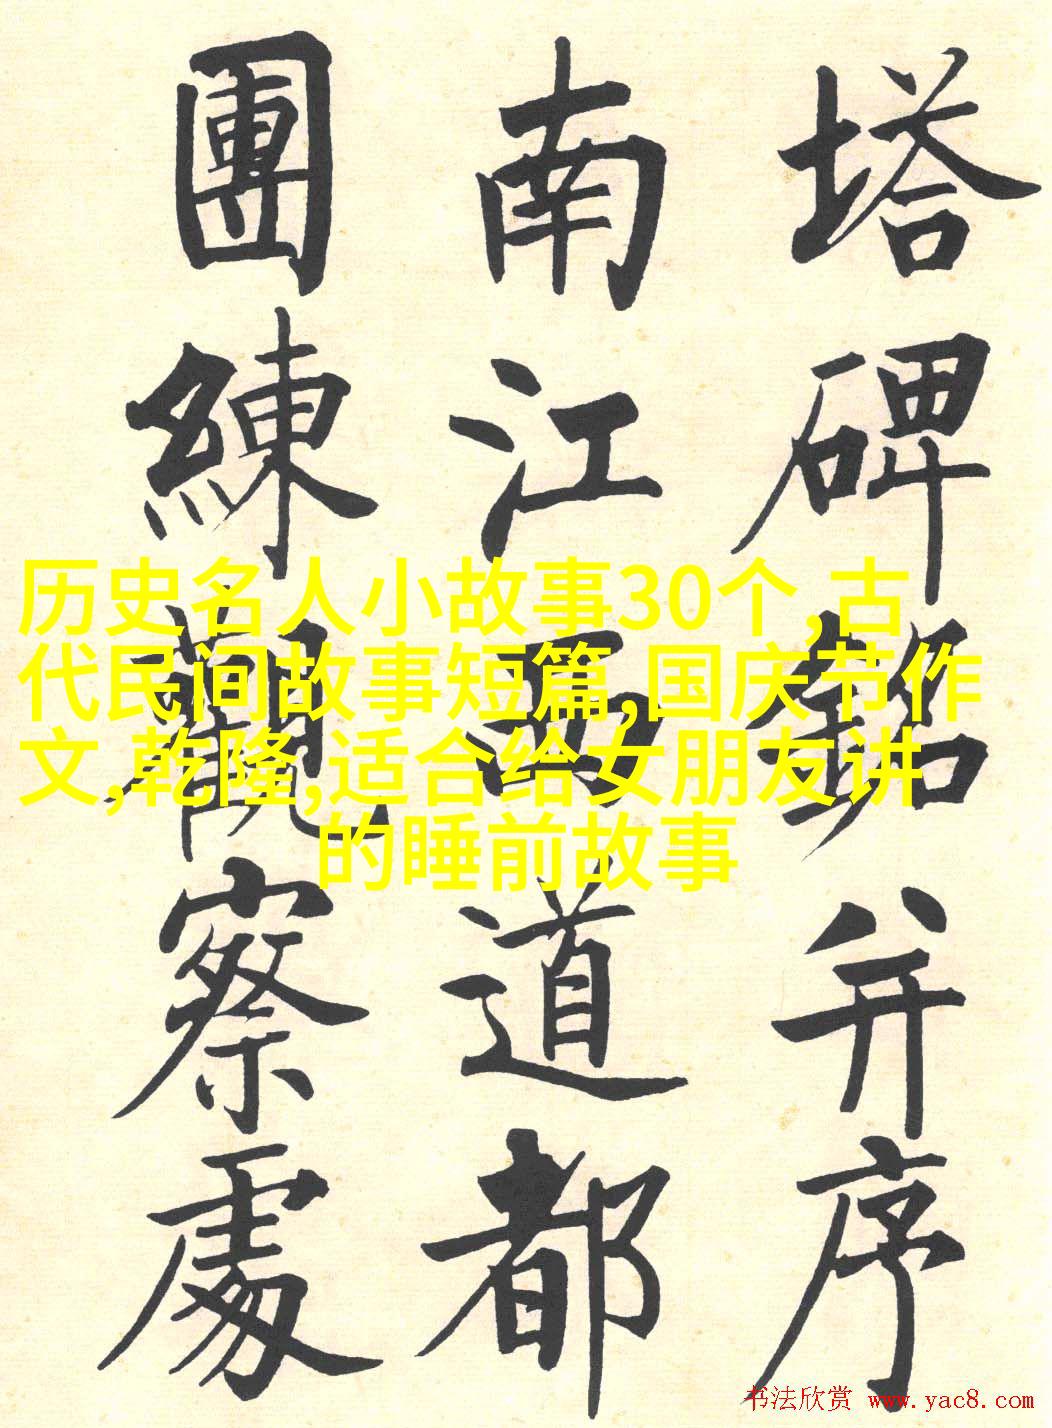 塔碑銘并序
南江西道都
團練觀察處
历史名人小故事30个,古
代民间故事短篇,国庆节作
文,乾隆,适合给女朋友讲
的睡前故事
书法欣赏 www.yac8.com